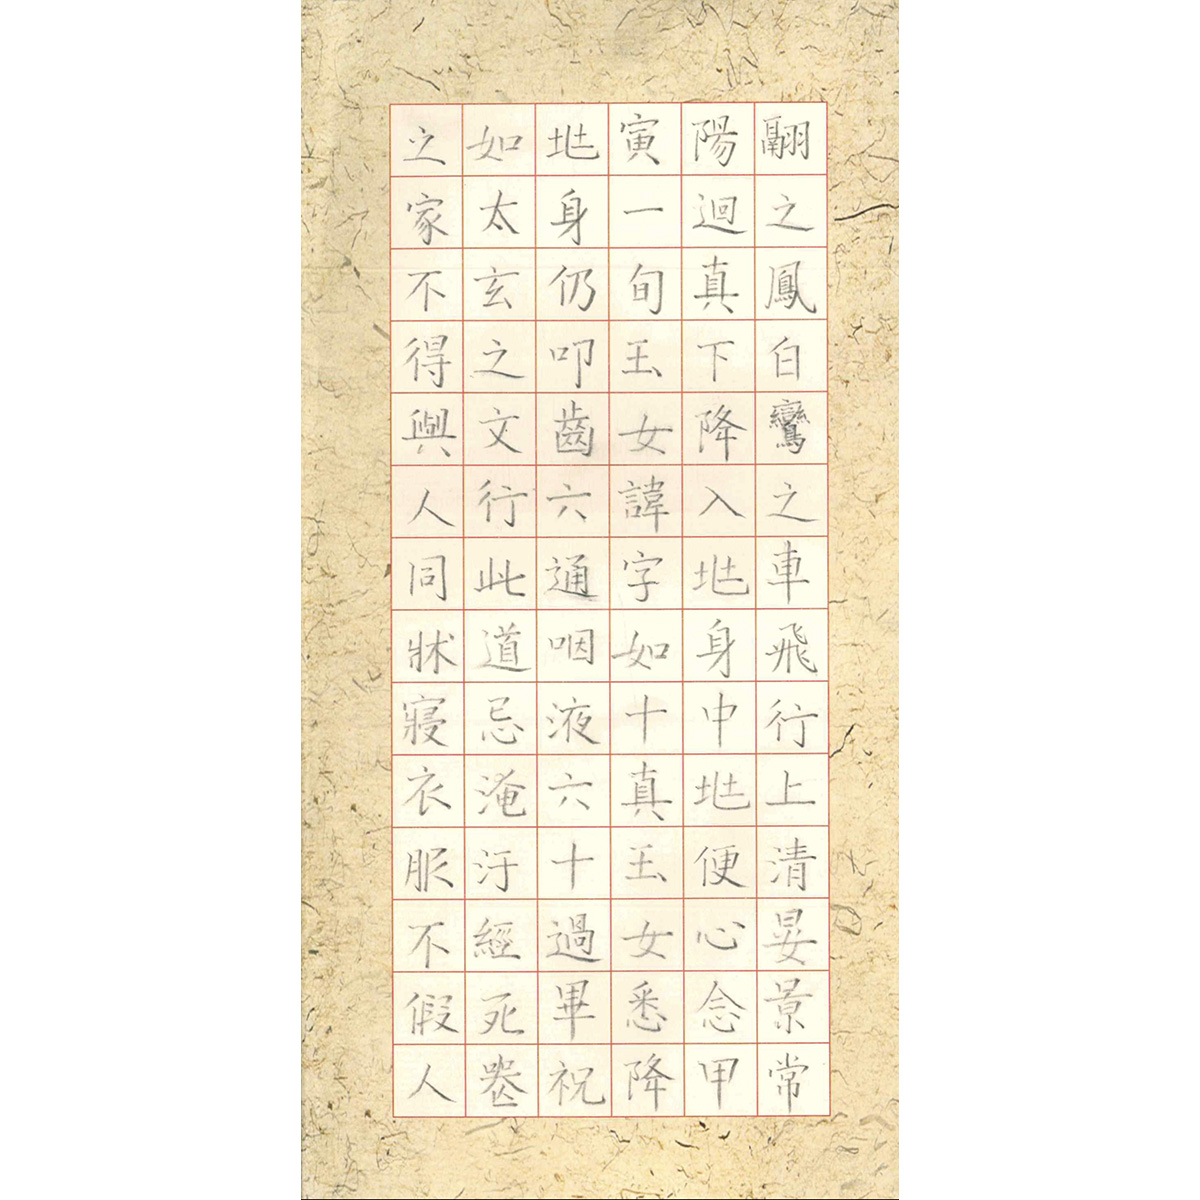 翮之鳳白鸞之車飛行上清晏景常
陽迴真下降入兆身中兆便心念甲
寅一旬玉女諱字如十真玉女悉降
兆身仍叩齒六通咽液六十過畢祝
如太玄之文行此道忌淹汙經死喪
之家不得與人同牀寢衣服不假人